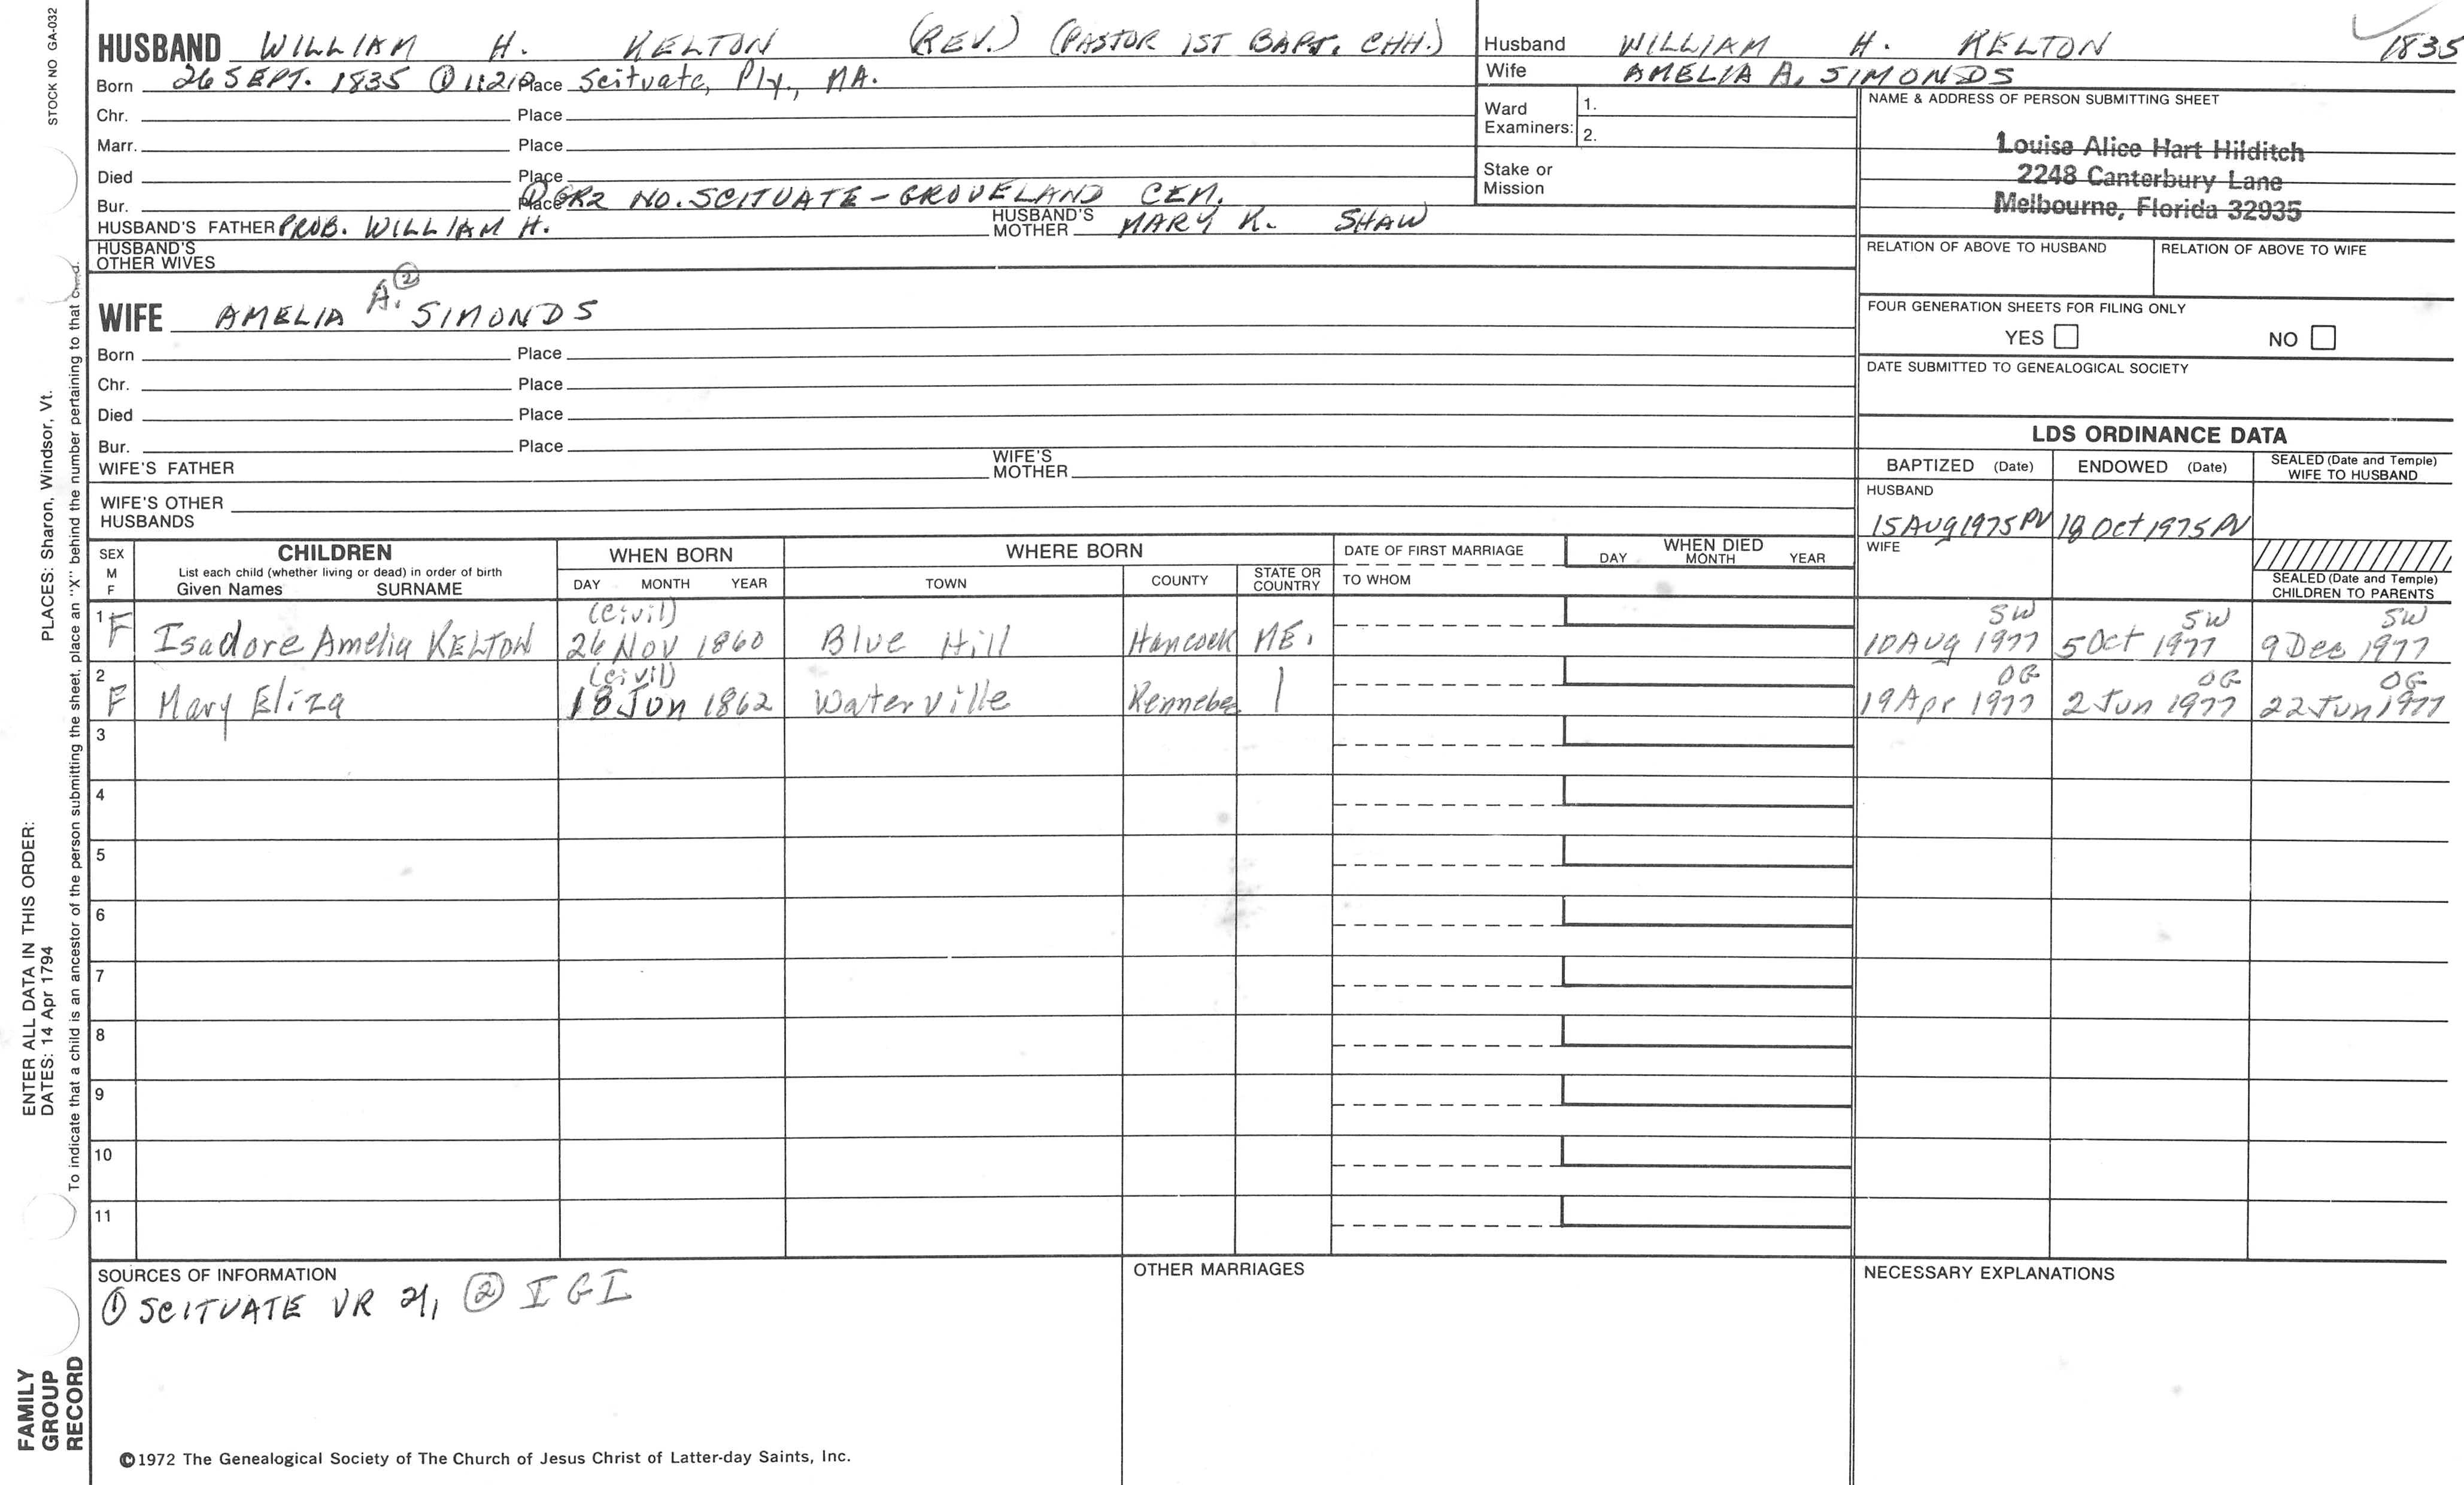 STOCK NO GA-032
HUSBAND WILLIAM H. KELTON (REV.) (PASTOR 1ST BAPT. CHH.)
Born 26 SEPT. 1835 ① Place Scituate, Ply., MA.
Chr. Place
Marr. Place
Died Place
Bur. Place ① GR2 NO. SCITUATE - GROVELAND CEM.
HUSBAND'S FATHER PROB. WILLIAM H. HUSBAND'S MOTHER MARY K. SHAW
HUSBAND'S OTHER WIVES
Husband WILLIAM H. KELTON 1835
Wife AMELIA A. SIMONDS
Ward Examiners: 1.
2.
Stake or Mission
NAME & ADDRESS OF PERSON SUBMITTING SHEET
Louisa Alice Hart Hilditch
2248 Canterbury Lane
Melbourne, Florida 32935
RELATION OF ABOVE TO HUSBAND RELATION OF ABOVE TO WIFE
FOUR GENERATION SHEETS FOR FILING ONLY
YES NO
DATE SUBMITTED TO GENEALOGICAL SOCIETY
WIFE AMELIA A. ② SIMONDS
Born Place
Chr. Place
Died Place
Bur. Place
WIFE'S FATHER WIFE'S MOTHER
WIFE'S OTHER HUSBANDS
LDS ORDINANCE DATA
BAPTIZED (Date) ENDOWED (Date) SEALED (Date and Temple) WIFE TO HUSBAND
HUSBAND
15 Aug 1975 PV 18 Oct 1975 PV
WIFE
SEALED (Date and Temple) CHILDREN TO PARENTS
SEX M F CHILDREN WHEN BORN WHERE BORN DATE OF FIRST MARRIAGE WHEN DIED
List each child (whether living or dead) in order of birth
Given Names SURNAME DAY MONTH YEAR TOWN COUNTY STATE OR COUNTRY TO WHOM DAY MONTH YEAR
(Civil) SW SW SW
1 F Isadore Amelia KELTON 26 Nov 1860 Blue Hill Hancock ME. 10 Aug 1977 5 Oct 1977 9 Dec 1977
(Civil) OG OG OG
2 F Mary Eliza 18 Jun 1862 Waterville Kennebec | 19 Apr 1977 2 Jun 1977 22 Jun 1977
3
4
5
6
7
8
9
10
11
SOURCES OF INFORMATION
① SCITUATE VR ② IGI
OTHER MARRIAGES
NECESSARY EXPLANATIONS
©1972 The Genealogical Society of The Church of Jesus Christ of Latter-day Saints, Inc.
FAMILY GROUP RECORD
ENTER ALL DATA IN THIS ORDER:
DATES: 14 Apr 1794 PLACES: Sharon, Windsor, Vt.
To indicate that a child is an ancestor of the person submitting the sheet, place an "X" behind the number pertaining to that